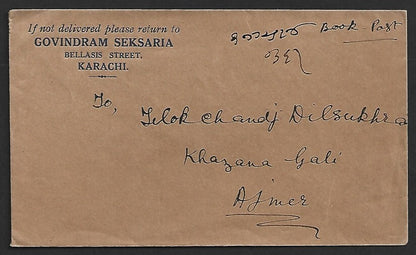 If not delivered please return to
GOVINDRAM SEKSARIA
BELLASIS STREET,
KARACHI.
Book Post
To,
Tilok Chandj Dilsukhra
Khazana Gali
Ajmer